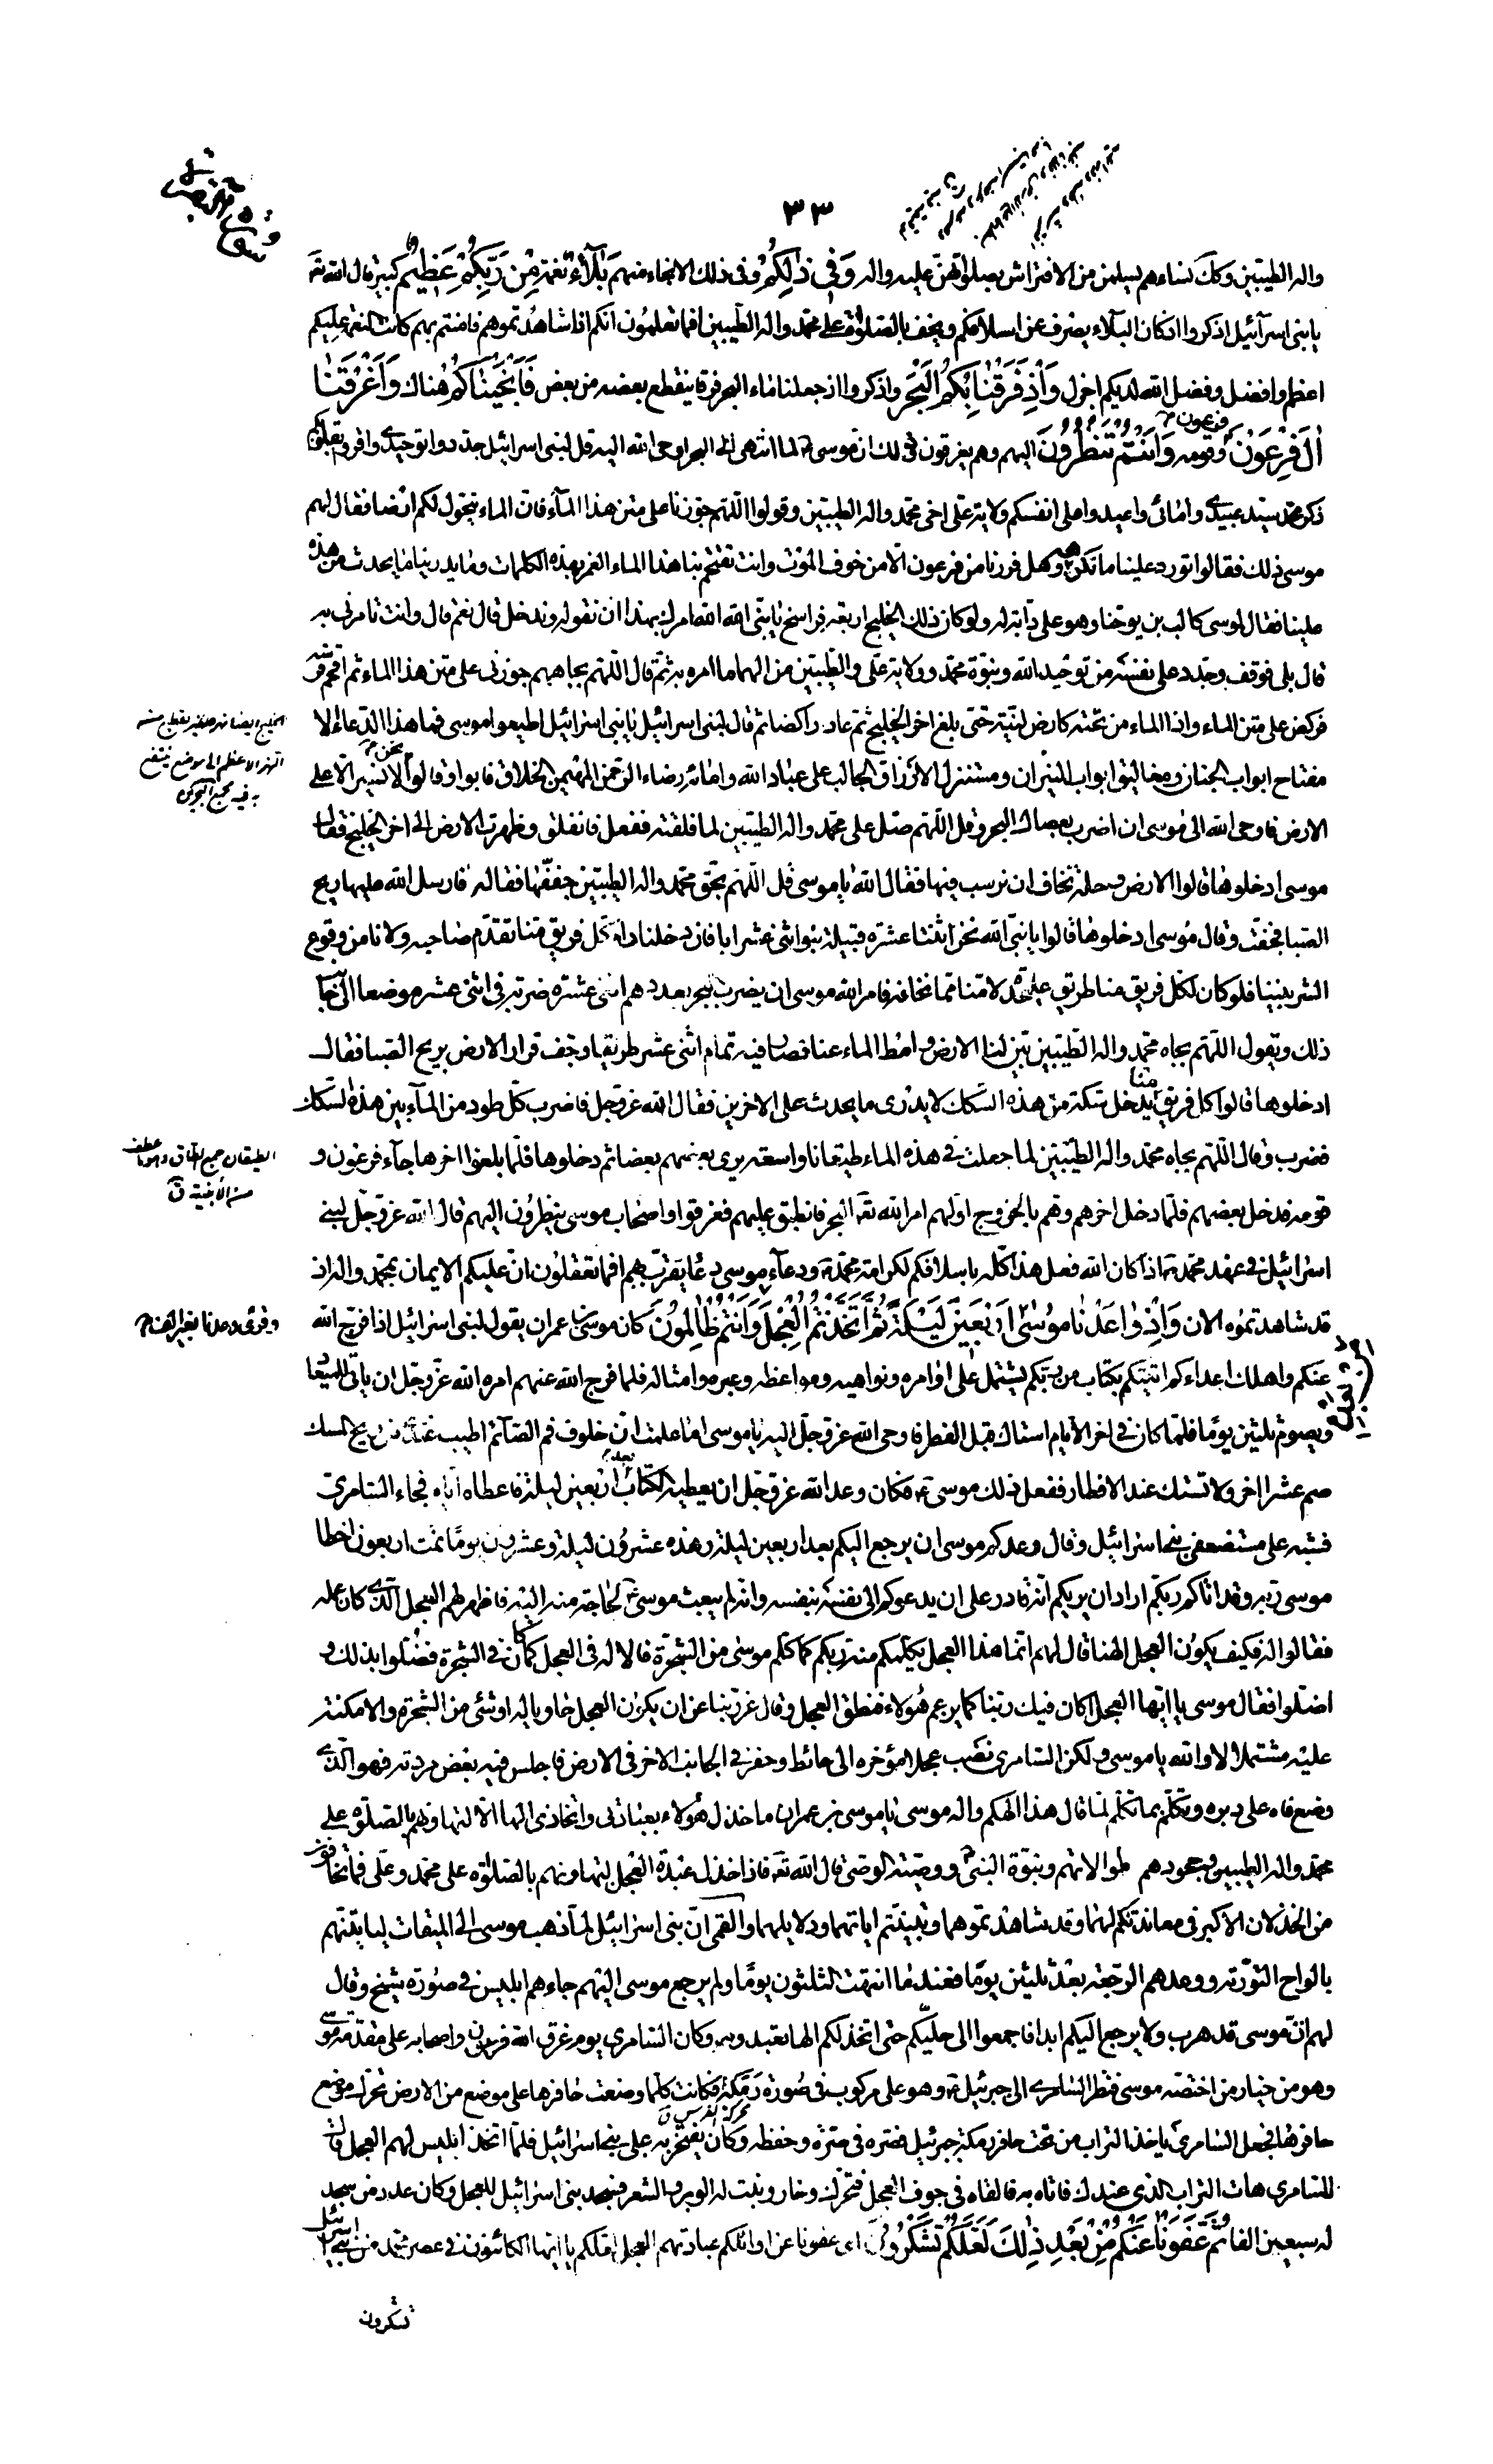 ٣٣
واله الطيبين وكك نساءهم يسلمن من الافتراش بصلوتهن عليه واله وَفِي ذٰلِكُمْ وفى ذلك الانجاء منهم بَلَآءٌ نعمة مِنْ رَبِّكُمْ عَظِيمٌ كبير قال الله تعَ
يا بنى اسرآئيل اذكروا اذ كان البلاء يصرف عن اسلافكم ويخف بالصلوة على محمد واله الطيبين افما تعلمون انكم اذا شاهدتموهم فامنتم بهم كانت النعمة عليكم
اعظم وافضل وفضل الله لديكم اجزل وَاِذْ فَرَقْنٰا بِكُمُ الْبَحْرَ واذكروا اذ جعلنا ماء البحر فرقا ينقطع بعضه من بعض فَاَنْجَيْنٰاكُمْ هناك وَاَغْرَقْنٰا
اٰلَ فِرْعَوْنَ فرعون وقومه وَاَنْتُمْ تَنْظُرُونَ اليهم وهم يغرقون وذلك ان موسى لما انتهى الى البحر اوحى الله اليه قل لبنى اسرائيل جددوا توحيدى واقروا بقلوبكم
ذكر محمد سيد عبيدى وامائى واعيدوا على انفسكم ولاية على اخى محمد واله الطيبين وقولوا اللهم جوزنا على متن هذا المآء فان الماء يتحول لكم ارضا فقال لهم
موسى ذلك فقالوا تورد علينا ما نكره وهل فررنا من فرعون الا من خوف الموت وانت تقتحم بنا هذا الماء الغمر بهذه الكلمات وما يدرينا ما يحدث من هذه
علينا فقال لموسى كالب بن يوحنا وهو على دابة له ولو كان ذلك الخليج اربعة فراسخ يا نبى الله الله امرك بهذا ان نقوله وندخل قال نعم قال وانت تامرنى به
قال بلى فوقف وجدد على نفسه من توحيد الله ونبوة محمد وولاية على والطيبين من الهما ما امره به ثم قال اللهم بجاههم جوزنى على متن هذا الماء ثم اقحم فرسه
فركض على متن الماء واذا الماء من تحته كارض لينة حتى بلغ اخر الخليج ثم عاد راكضا ثم قال لبنى اسرائيل يا بنى اسرائيل اطيعوا موسى فما هذا الدعاء الا
مفتاح ابواب الجنان ومغاليق ابواب النيران ومستنزل الارزاق والجالب على عباد الله وامائه رضاء الرحمن المهيمن الخلاق فابوا وقالوا نحن لا نسير الا على
الارض فاوحى الله الى موسى ان اضرب بعصاك البحر وقل اللهم صل على محمد واله الطيبين لما فلقته ففعل فانفلق وظهرت الارض الى اخر الخليج فقال
موسى ادخلوها قالوا الارض وحلة نخاف ان نرسب فيها فقال الله يا موسى قل اللهم بحق محمد واله الطيبين جففها فقالها فارسل الله عليها ريح
الصبا فجفت وقال موسى ادخلوها قالوا يا نبى الله نحن اثنتا عشرة قبيلة بنو اثنى عشر ابا فان دخلنا رام كل فريق منا تقدم صاحبه ولا نامن وقوع
الشر بيننا فلو كان لكل فريق منا طريق على حدة لامنا مما نخافه فامر الله موسى ان يضرب البحر بعددهم اثنى عشرة ضربة فى اثنى عشر موضعا الى جانب
ذلك ويقول اللهم بجاه محمد واله الطيبين بين لنا الارض وامط الماء عنا فصار فيه تمام اثنى عشر طريقا وجف قرار الارض بريح الصبا فقال
ادخلوها قالوا كل فريق منا يدخل سكة من هذه السكك لا يدرى ما يحدث على الاخرين فقال الله عز وجل فاضرب كل طود من المآء بين هذه السكك
فضرب وقال اللهم بجاه محمد واله الطيبين لما جعلت فى هذه الماء طيقانا واسعة يرى بعضهم بعضا ثم دخلوها فلما بلغوا اخرها جآء فرعون و
قومه فدخل بعضهم فلما دخل اخرهم وهم بالخروج اولهم امر الله تعَ البحر فانطبق عليهم فغرقوا واصحاب موسى ينظرون اليهم قال الله عز وجل لبنى
اسرائيل فى عهد محمد فاذا كان الله فعل هذا كله باسلافكم لكرامة محمد ودعآء موسى دعاء يقرب بهم افما تعقلون ان عليكم الايمان بمحمد واله اذ
قد شاهدتموه الان وَاِذْ وٰاعَدْنٰا مُوسٰى اَرْبَعِينَ لَيْلَةً ثُمَّ اتَّخَذْتُمُ الْعِجْلَ وَاَنْتُمْ ظٰالِمُونَ كان موسى بن عمران يقول لبنى اسرائيل اذا فرج الله
عنكم واهلك اعداءكم اتيتكم بكتاب من ربكم يشتمل على اوامره ونواهيه ومواعظه وعبره وامثاله فلما فرج الله عنهم امره الله عز وجل ان ياتى الميعاد
ويصوم ثلثين يوما فلما كان فى اخر الايام استاك قبل الفطر فاوحى الله عز وجل اليه يا موسى اما علمت ان خلوف فم الصآئم اطيب عندى من ريح المسك
صم عشرا اخر ولا تستك عند الافطار ففعل ذلك موسى فكان وعد الله عز وجل ان يعطيه الكتاب بعد اربعين ليلة فاعطاه اياه فجاء السامرى
فشبه على مستضعفى بنى اسرائيل وقال وعدكم موسى ان يرجع اليكم بعد اربعين ليلة وهذه عشرون ليلة وعشرون يوما تمت اربعون اخطا
موسى ربه وقد اتاكم ربكم اراد ان يريكم انه قادر على ان يدعوكم الى نفسه بنفسه وانه لم يبعث موسى لحاجة منه اليه فاظهر لهم العجل الذى كان عمله
فقالوا له فكيف يكون العجل الهنا قال لهم انما هذا العجل يكلمكم منه ربكم كما كلم موسى من الشجرة فالاله فى العجل كما كان فى الشجرة فضلوا بذلك و
اضلوا فقال موسى يا ايها العجل اكان فيك ربنا كما يزعم هؤلاء فنطق العجل وقال عز ربنا عن ان يكون العجل حاويا له او شئ من الشجرة والامكنة
عليه مشتملا لا والله يا موسى ولكن السامرى نصب عجلا مؤخره الى حائط وحفر فى الجانب الاخر فى الارض فاجلس فيه بعض مردته فهو الذى
وضع فاه على دبره وتكلم بما تكلم لما قال هذا الهكم واله موسى يا موسى بن عمران ما خذل هؤلاء بعبادتى واتخاذى الها الا لتهاونهم بالصلوة على
محمد واله الطيبين وجحودهم لموالاتهم وبنبوة النبى ووصية الوصى قال الله تعَ فاذا خذل عبدة العجل لتهاونهم بالصلوة على محمد وعلى فما تخافون
من الخذلان الاكبر فى معاندتكم لهما وقد شاهدتموهما وتبينتم اياتهما ودلايلهما والقمى ان بنى اسرائيل لما ذهب موسى الى الميقات لياتيهم
بالواح التورية ووعدهم الرجعة بعد ثلثين يوما فعندما انتهت الثلثون يوما ولم يرجع موسى اليهم جاءهم ابليس فى صورة شيخ وقال
لهم ان موسى قد هرب ولا يرجع اليكم ابدا فاجمعوا الى حليكم حتى اتخذ لكم الها تعبدونه وكان السامرى يوم غرق الله فرعون واصحابه على مقدمة موسى
وهو من خيار من اختصه موسى فنظر السامرى الى جبرئيل وهو على مركوب فى صورة رمكة فكانت كلما وضعت حافرها على موضع من الارض تحرك موضع
حافرها فجعل السامرى ياخذ التراب من تحت حافر رمكة جبرئيل فصره فى صرة وحفظه وكان يفتخر به على بنى اسرائيل فلما اتخذ ابليس لهم العجل قال
للسامرى هات التراب الذى عندك فاتاه به فالقاه فى جوف العجل فتحرك وخار ونبت له الوبر والشعر فسجد بنى اسرائيل للعجل وكان عدد من سجد
له سبعين الفا ثُمَّ عَفَوْنٰا عَنْكُمْ مِنْ بَعْدِ ذٰلِكَ لَعَلَّكُمْ تَشْكُرُونَ اى عفونا عن اوائلكم عبادتهم العجل لعلكم يا ايها الكائنون فى عصر محمد من بنى اسرائيل
تشكرون
الخليج ايضا نهر صغير يقطع من
النهر الاعظم الى موضع ينتفع
به فيه مجمع البحرين
الطيقان جمع الطاق وهو ما عطف
من الابنية ق
وقرئ وعدنا بغير الف